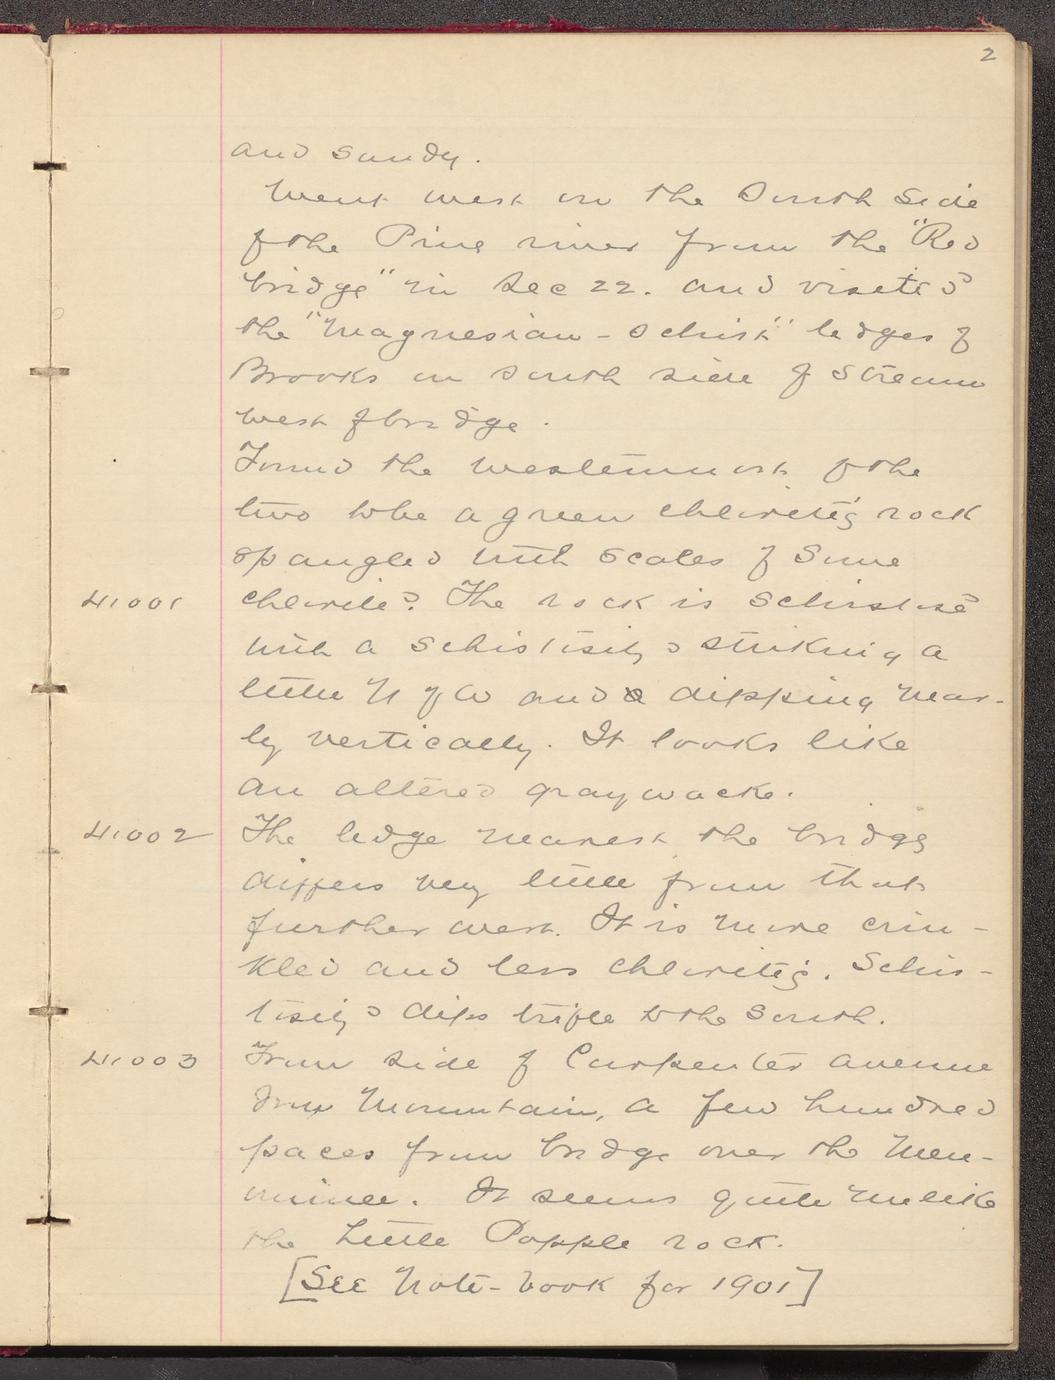 2
and sandy.
Went west on the South side
of the Pine river from the "Red
bridge" in Sec 22. and visited
the "Magnesian-schist" ledges of
Brooks on south side of stream
west of bridge.
Found the westernmost of the
two to be a green chloritic rock
spangled with scales of some
41001 chlorite?. The rock is schistose
with a schistosity striking a
little N of W and dipping near-
ly vertically. It looks like
an altered graywacke.
41002 The ledge nearest the bridge
differs very little from that
further west. It is more crin-
kled and less chloritic. Schis-
tosity dips trifle to the South.
41003 From side of Carpenter avenue
Iron Mountain, a few hundred
paces from bridge over the Men-
ominee. It seems quite unlike
the Little Popple rock.
[See Note-book for 1901]